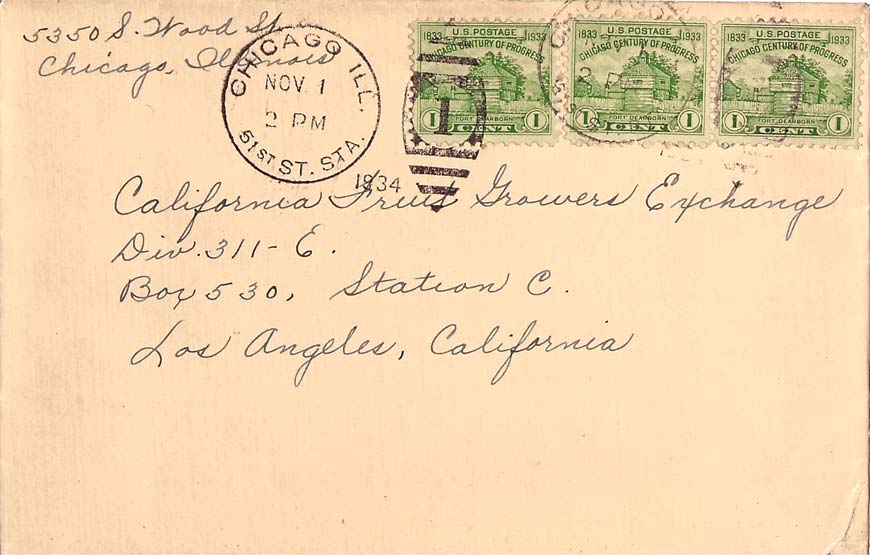 5350 S. Wood St.
Chicago, Illinois
CHICAGO ILL.
NOV 1
2 PM
1934
51ST ST. STA.
1
1833 U.S. POSTAGE 1933
CHICAGO CENTURY OF PROGRESS
FORT DEARBORN
1 CENT 1
1833 U.S. POSTAGE 1933
CHICAGO CENTURY OF PROGRESS
FORT DEARBORN
1 CENT 1
1833 U.S. POSTAGE 1933
CHICAGO CENTURY OF PROGRESS
FORT DEARBORN
1 CENT 1
California Fruit Growers Exchange
Div. 311-E.
Box 530, Station C.
Los Angeles, California